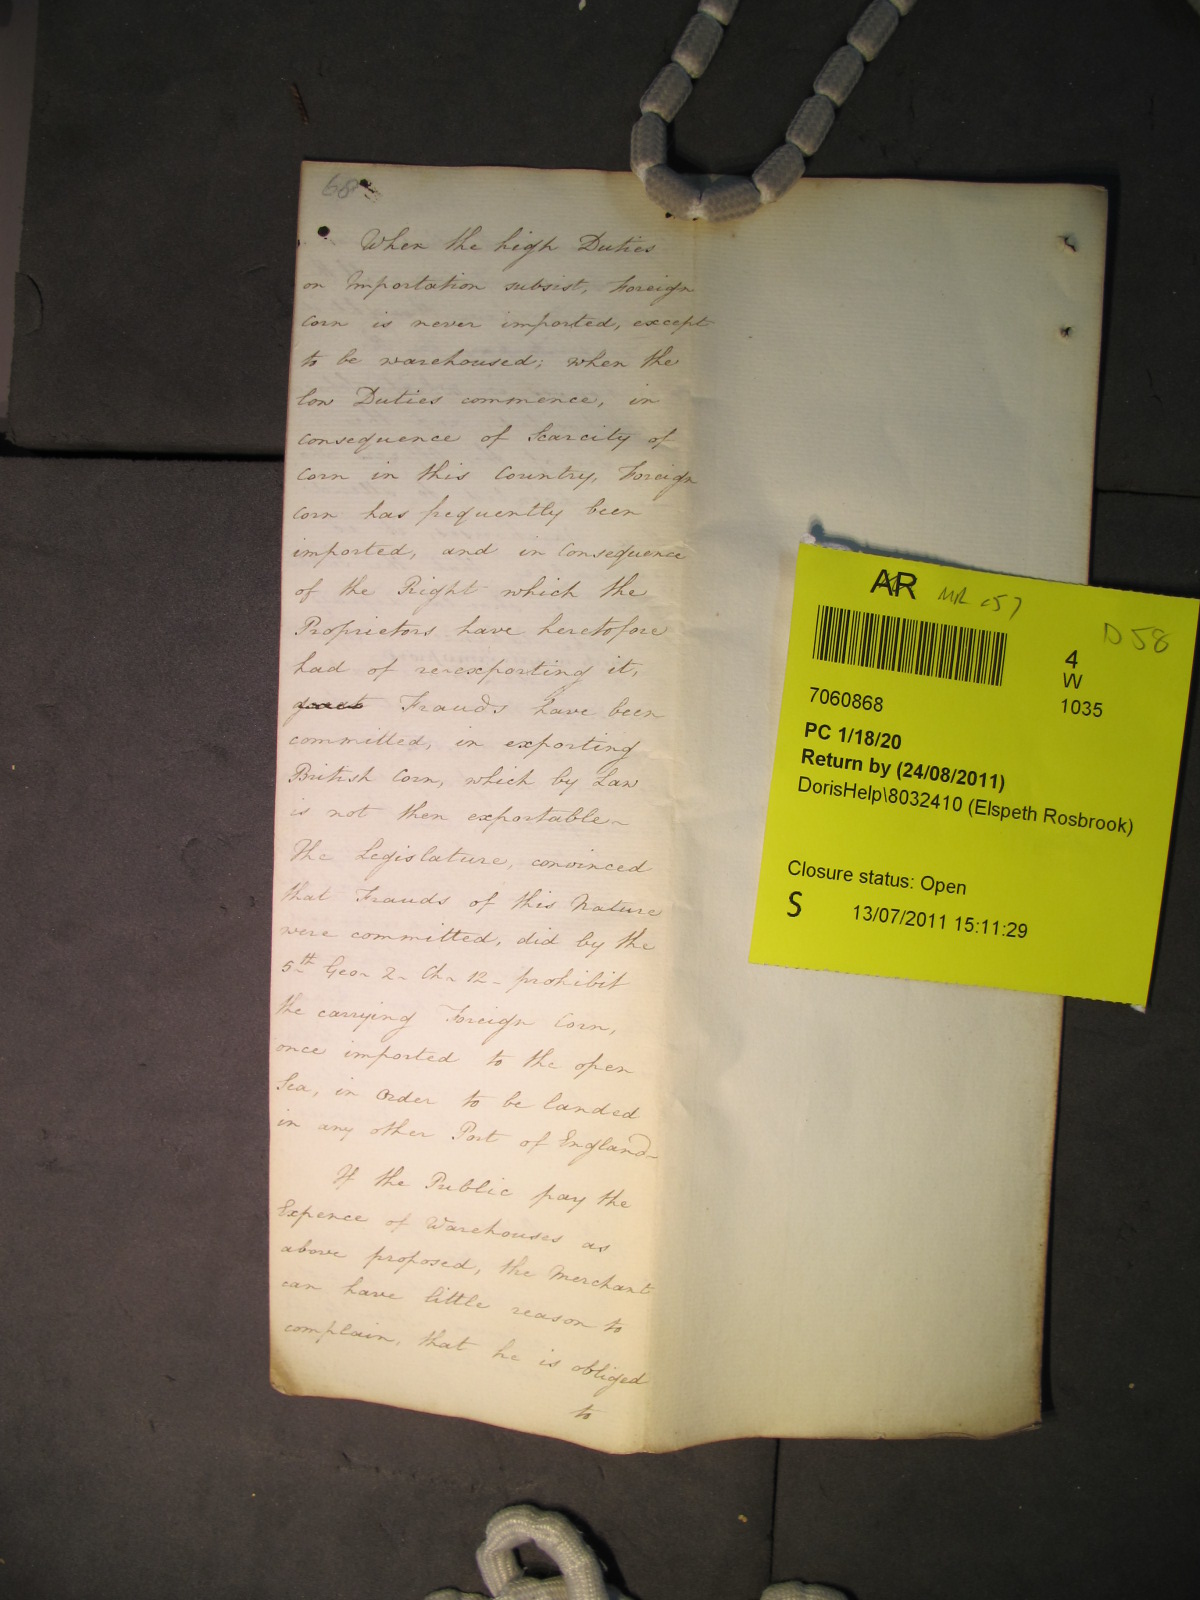 68
When the high Duties
on Importation subsist, Foreign
Corn is never imported, except
to be warehoused; when the
low Duties commence, in
consequence of Scarcity of
Corn in this Country, Foreign
Corn has frequently been
imported, and in Consequence
of the Right which the
Proprietors have heretofore
had of re-exporting it,
great Frauds have been
committed, in exporting
British Corn, which by Law
is not then exportable ~
The Legislature, convinced
that Frauds of this Nature
were committed, did by the
5th Geo. 2. Ch. 12 - prohibit
the carrying Foreign Corn,
once imported to the open
Sea, in Order to be landed
in any other Port of England -
If the Public pay the
Expence of Warehouses as
above proposed, the Merchant
can have little reason to
complain, that he is obliged
to
AR MR 157
D 58
4
W
1035
7060868
PC 1/18/20
Return by (24/08/2011)
DorisHelp\8032410 (Elspeth Rosbrook)
Closure status: Open
S 13/07/2011 15:11:29